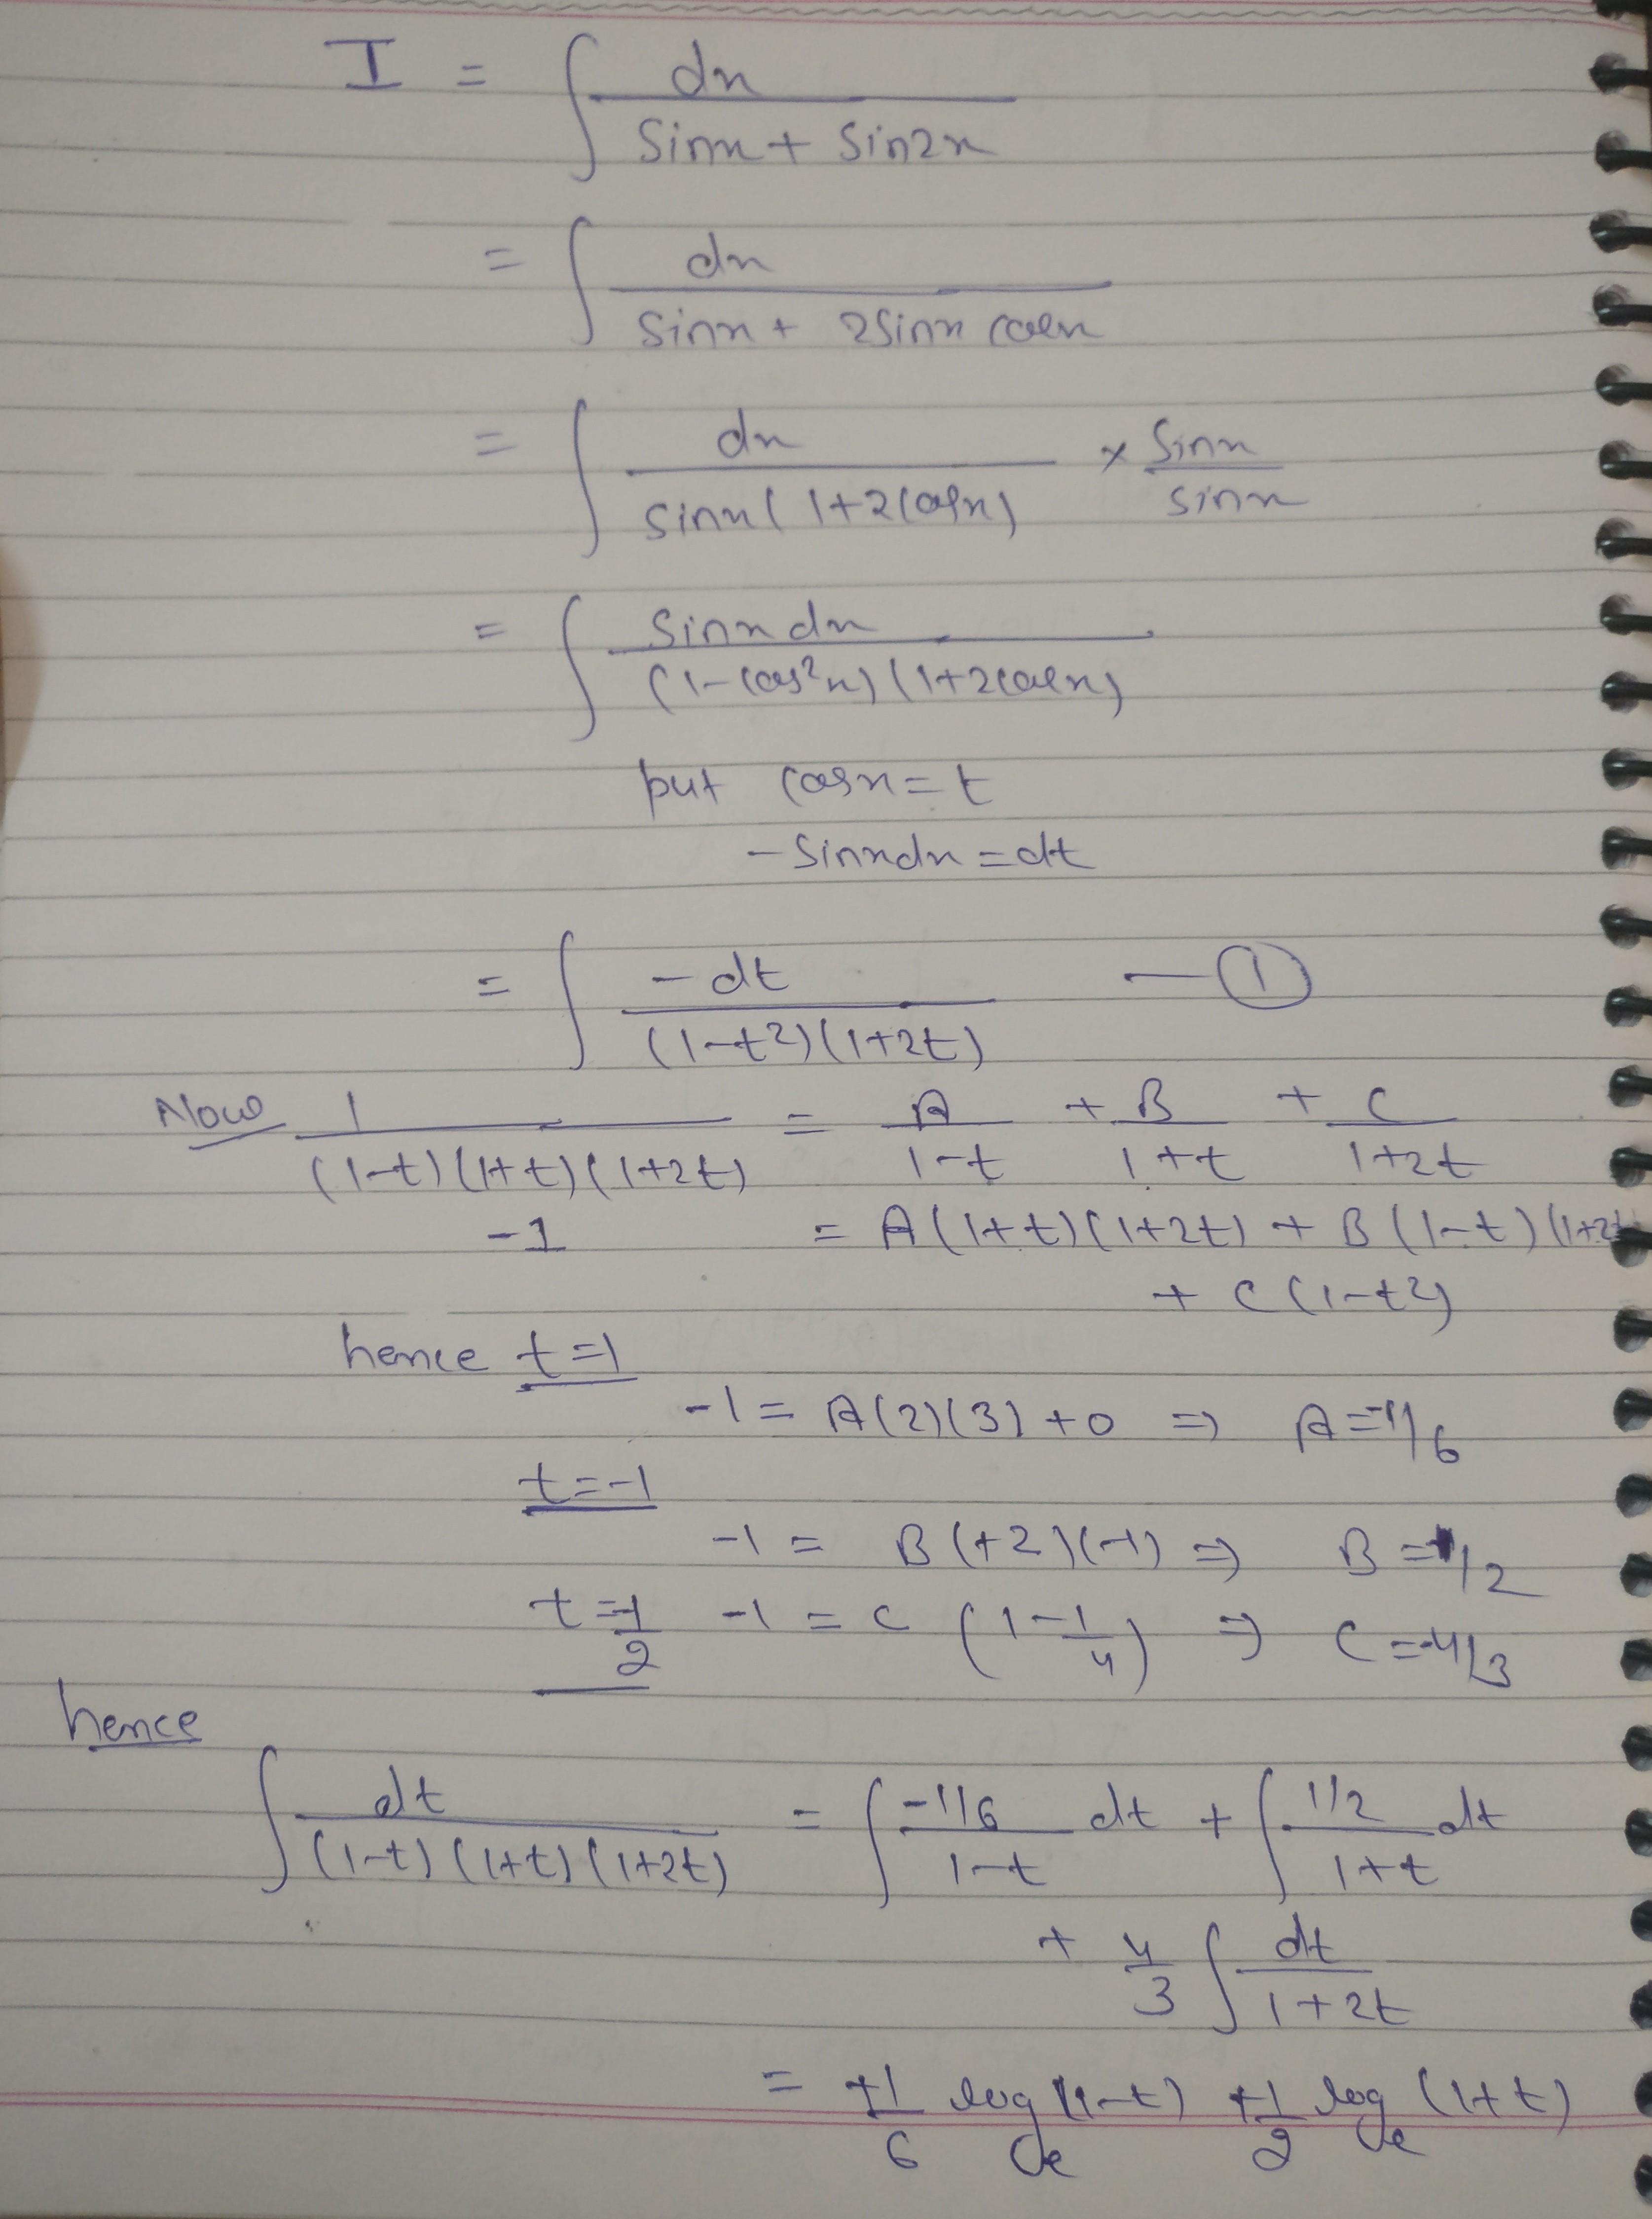 I = ∫ dx / (Sinx + Sin2x)
= ∫ dx / (Sinx + 2Sinx cosx)
= ∫ dx / (Sinx(1+2cosx)) × Sinx / Sinx
= ∫ Sinx dx / ((1-cos²x)(1+2cosx))
put cosx = t
-Sinxdx = dt
= ∫ -dt / ((1-t²)(1+2t)) — ①
Now 1 / ((1-t)(1+t)(1+2t)) = A / (1-t) + B / (1+t) + C / (1+2t)
-1 = A(1+t)(1+2t) + B(1-t)(1+2t
+ C(1-t²)
hence t=1
-1 = A(2)(3)+0 ⇒ A=-1/6
t=-1
-1 = B(+2)(-1) ⇒ B=1/2
t=-1/2 -1 = C(1-1/4) ⇒ C=-4/3
hence
∫ dt / ((1-t)(1+t)(1+2t)) = ∫ (-1/6) / (1-t) dt + ∫ (1/2) / (1+t) dt
+ 4/3 ∫ dt / (1+2t)
= +1/6 logₑ(1-t) +1/2 logₑ(1+t)